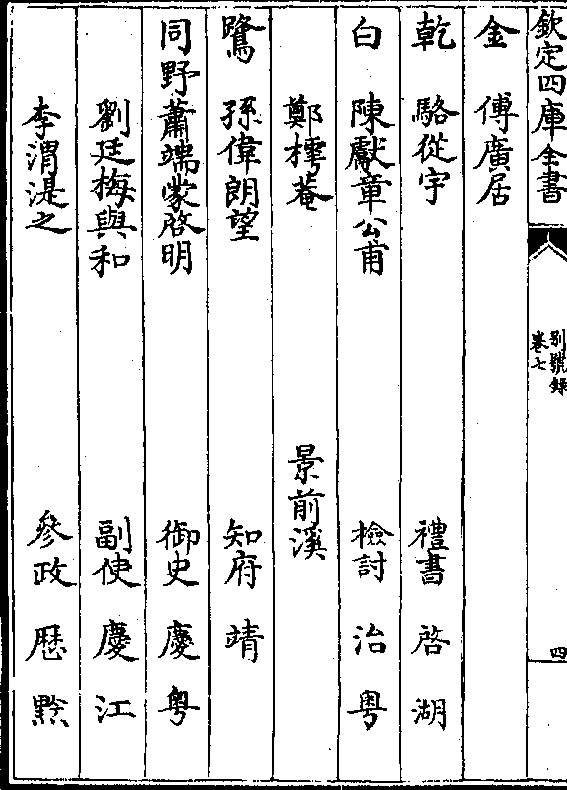 欽定四庫全書
別號錄
卷七
四
金 傅廣居
乾 駱從宇 禮書 啓 湖
白 陳獻章公甫 檢討 治 粤
鄭樗菴 景前溪
鷺 孫偉朗望 知府 靖
同野蕭端蒙啓明 御史 慶 粤
劉廷梅與和 副使 慶 江
李渭湜之 參政 歴 黔